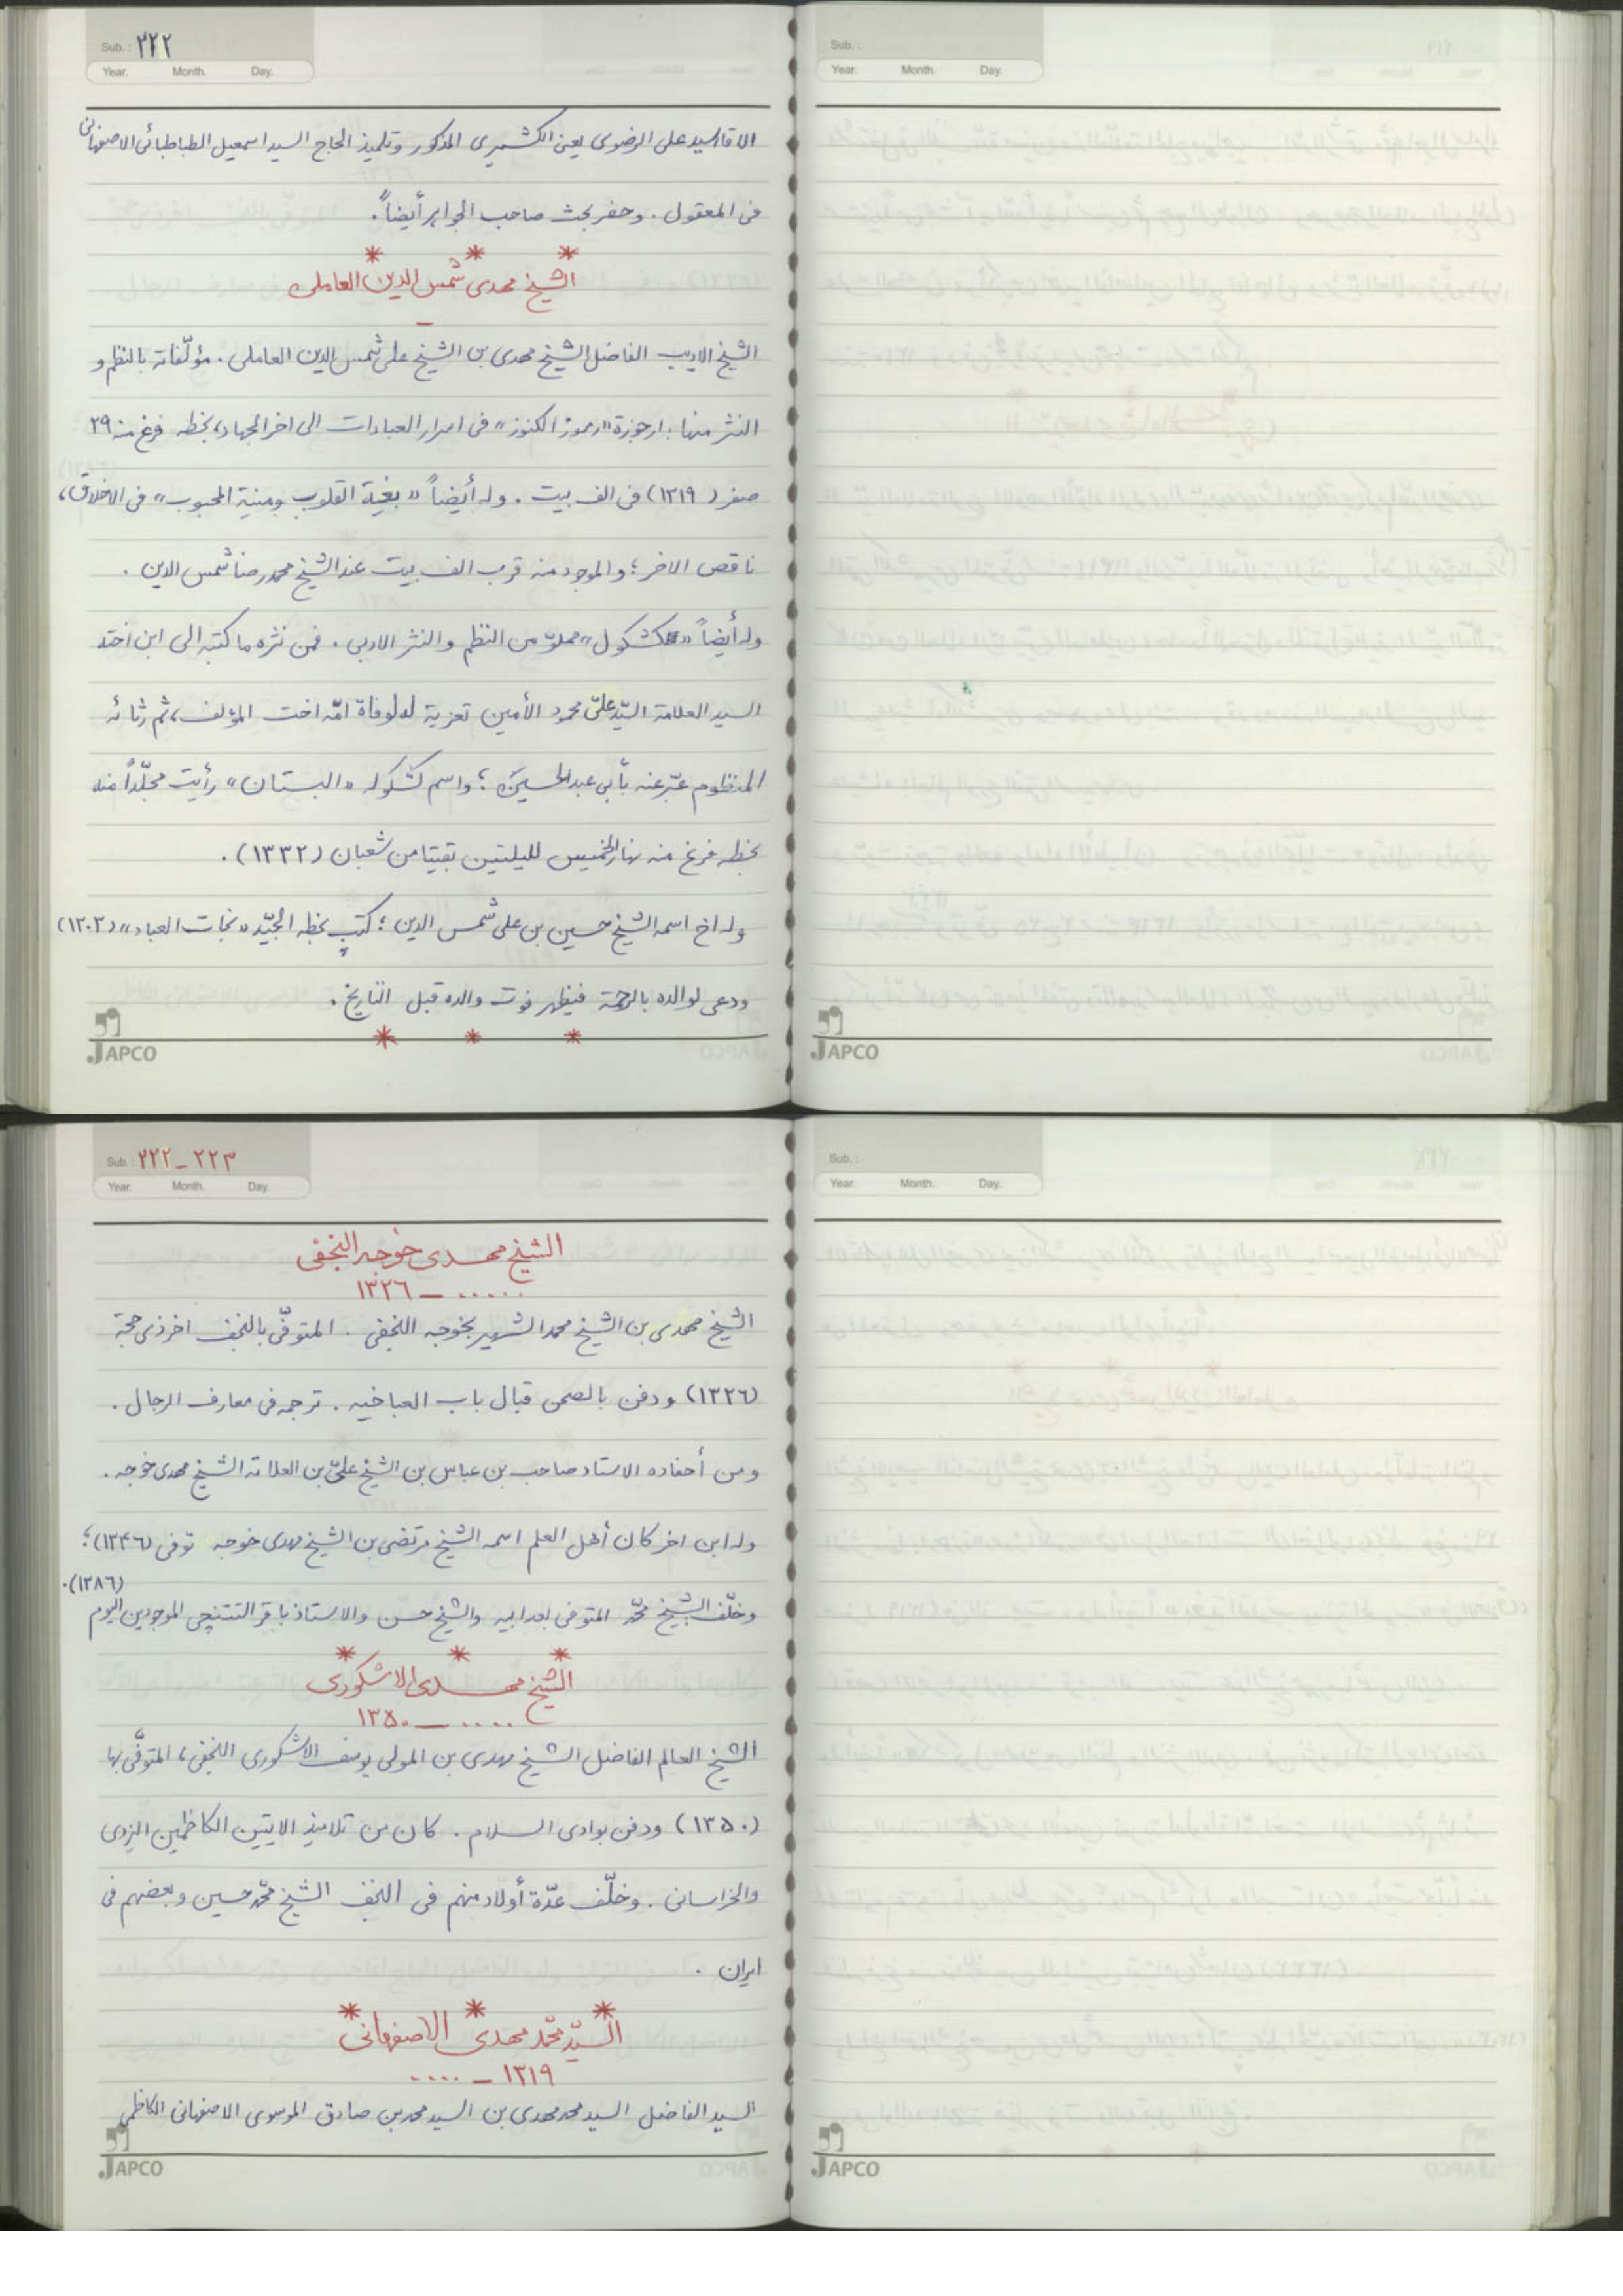 Sub.: ٢٢٢
Year. Month. Day.
الاقا السيد على الرضوى يعنى الكشميرى المذكور وتلميذ الحاج السيد اسمعيل الطباطبائى الاصفهانى
فى المعقول . وحضر بحث صاحب الجواهر أيضاً .
* * *
الشيخ مهدى شمس الدين العاملى
الشيخ الاديب الفاضل الشيخ مهدى بن الشيخ على شمس الدين العاملى . مؤلّفاته بالنظم و
النثر منها : ارجوزة «رموز الكنوز» فى اسرار العبادات الى اخر الجهاد، بخطه فرغ منه ٢٩
صفر (١٣١٩) فى الف بيت . وله أيضاً «بغية القلوب ومنية المحبوب» فى الاخلاق،
ناقص الاخر ؛ والموجود منه قرب الف بيت عند الشيخ محمدرضا شمس الدين .
وله أيضاً «كشكول» مملوّ من النظم والنثر الادبى . فمن نثره ما كتبه الى ابن اخته
السيد العلامة السيّد علىّ محمود الأمين تعزية له لوفاة امّه اخت المؤلف، ثم رثائه
المنظوم عبّر عنه بأبى عبد الحسين ؛ واسم كشكوله «البستان» رأيت مجلّداً منه
بخطه فرغ منه نهار الخميس لليلتين بقيتا من شعبان (١٣٣٢) .
وله اخ اسمه الشيخ حسين بن على شمس الدين ؛ كتب بخطه الجيّد «نجات العباد» (١٣٠٣)
ودعى لوالده بالرحمة فيظهر فوت والده قبل التاريخ .
* * *
JAPCO
Sub.:
Year. Month. Day.
JAPCO
Sub.: ٢٢٢ - ٢٢٣
Year. Month. Day.
الشيخ مهدى خوجه النجفى
..... — ١٣٢٦
الشيخ مهدى بن الشيخ محمد الشهير بخوجه النجفى . المتوفّى بالنجف اخر ذى حجة
(١٣٢٦) ودفن بالصحن قبال باب العباخيه . ترجمه فى معارف الرجال .
ومن أحفاده الاستاد صاحب بن عباس بن الشيخ علىّ بن العلامة الشيخ مهدى خوجه .
وله ابن اخر كان أهل العلم اسمه الشيخ مرتضى بن الشيخ مهدى خوجه توفى (١٣٤٦) ؛
وخلّف الشيخ محمّد المتوفى بعد ابيه والشيخ حسن والاستاذ باقر التتنچى الموجودين اليوم
(١٣٨٦) .
* * *
الشيخ مهدى الاشكورى
..... — ١٣٥٠
الشيخ العالم الفاضل الشيخ مهدى بن المولى يوسف الاشكورى النجفى ، المتوفّى بها
(١٣٥٠) ودفن بوادى السلام . كان من تلاميذ الايتين الكاظمين اليزدى
والخراسانى . وخلّف عدّة أولاد منهم فى النجف الشيخ محمّد حسين وبعضهم فى
ايران .
* * *
السيّد محمّد مهدى الاصفهانى
١٣١٩ — ....
السيد الفاضل السيد محمد مهدى بن السيد محمد بن صادق الموسوى الاصفهانى الكاظمى
JAPCO
Sub.:
Year. Month. Day.
JAPCO